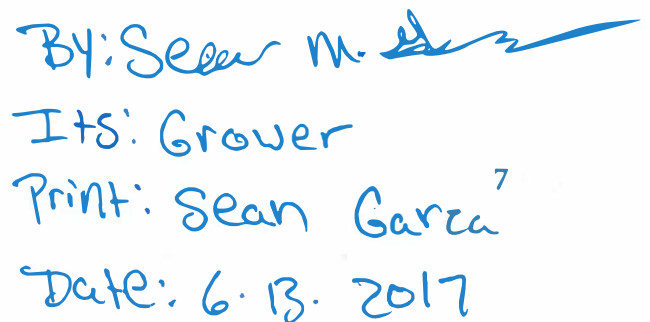 By: Sean M. G
Its: Grower
Print: Sean Garza 7
Date: 6. 13. 2017